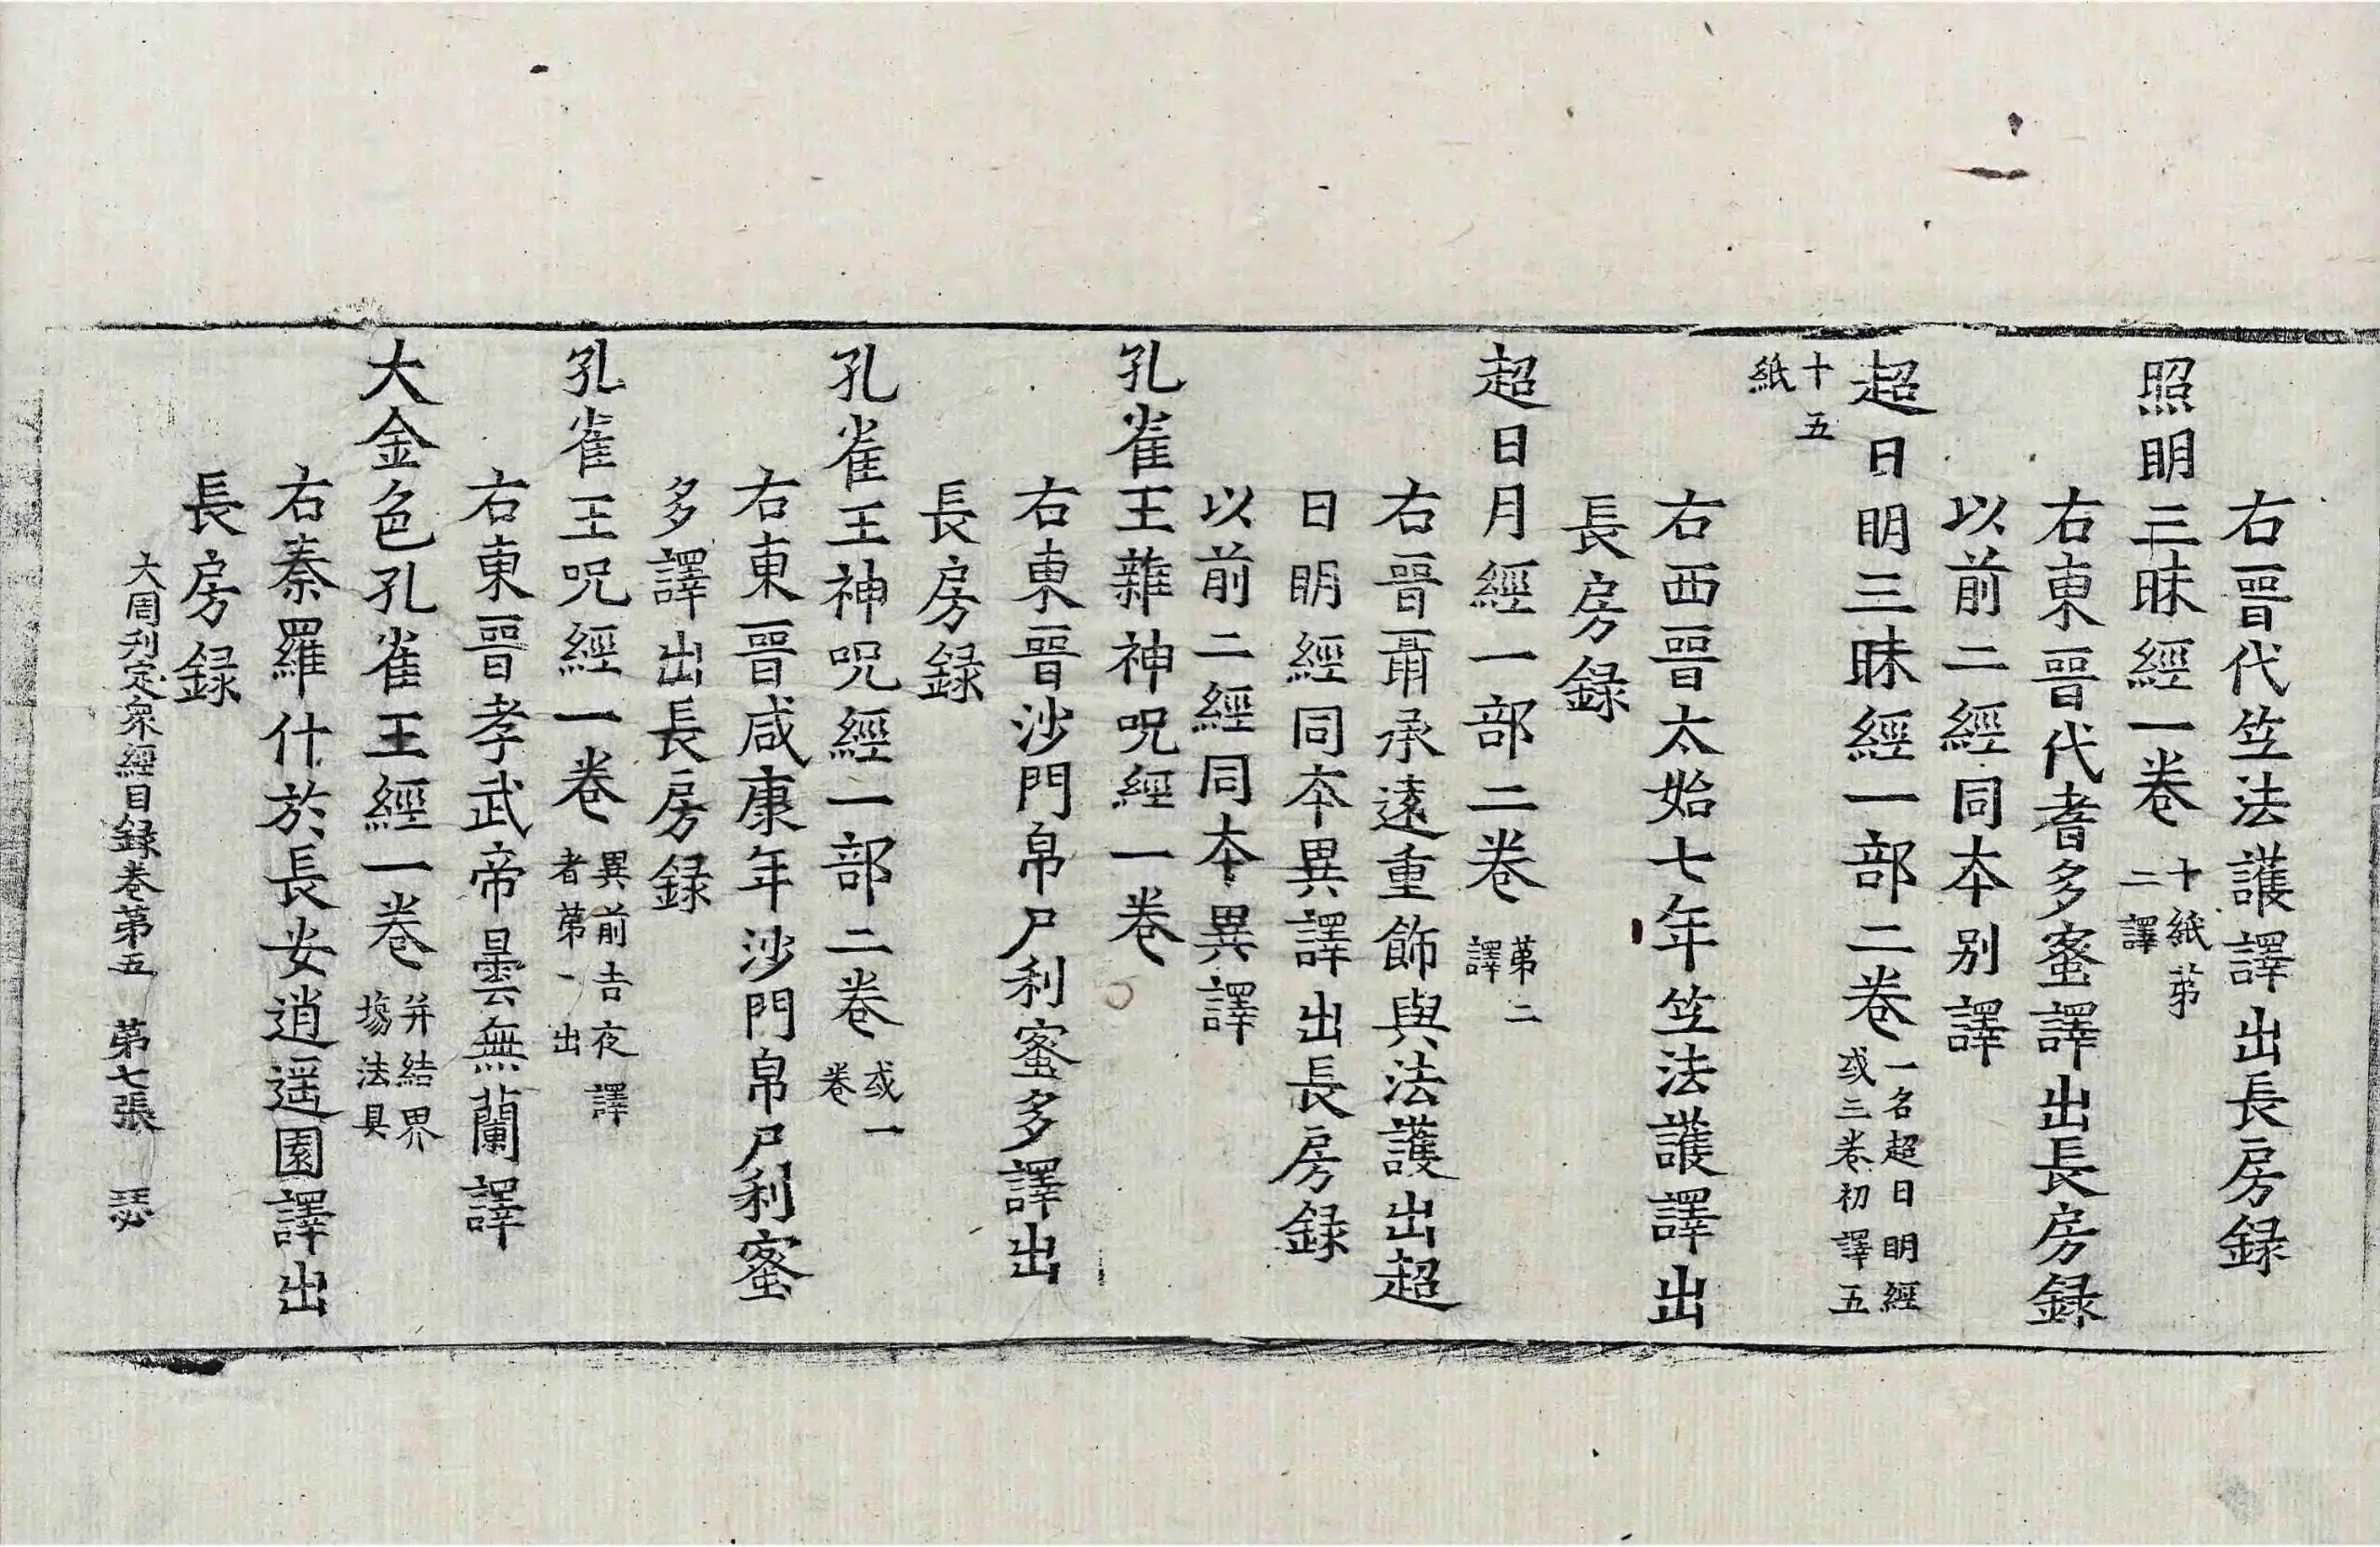 右晉代竺法護譯出長房録
照明三昧經一卷 十紙第二譯
右東晉代耆多蜜譯出長房録
以前二經同本別譯
超日明三昧經一部二卷 一名超日明經或三卷初譯五
十五紙
右西晉太始七年竺法護譯出
長房録
超日月經一部二卷 第二譯
右晉聶承遠重飾與法護出超
日明經同本異譯出長房録
以前二經同本異譯
孔雀王雜神呪經一卷
右東晉沙門帛尸利蜜多譯出
長房録
孔雀王神呪經一部二卷 或一卷
右東晉咸康年沙門帛尸利蜜
多譯出長房録
孔雀王呪經一卷 異前吉夜譯者第一出
右東晉孝武帝曇無蘭譯
大金色孔雀王經一卷 并結界塲法具
右秦羅什於長安逍遥園譯出
長房録
大周刋定衆經目録卷第五 第七張 瑟